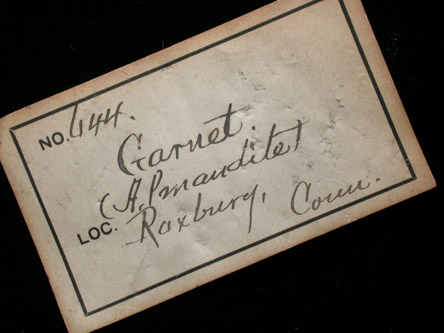 NO. 644.
Garnet.
(Almandite)
LOC. Roxbury, Conn.